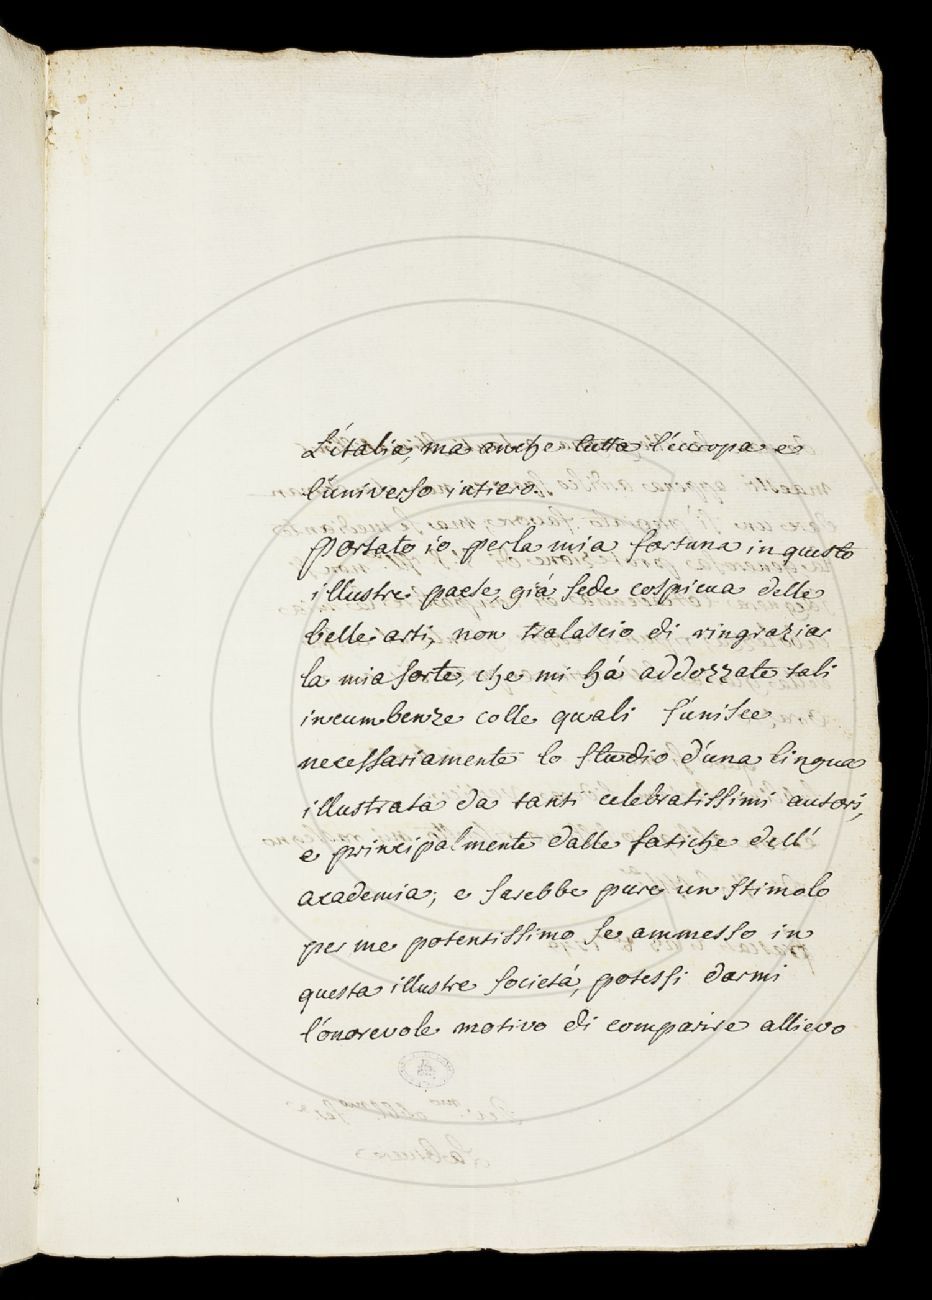 L'italia, ma anche tutta l'europa e
l'universo intiero.
portato io per la mia fortuna in questo
illustre paese, giá sede cospicua delle
belle arti, non tralascio di ringraziar
la mia sorte, che mi há addozzate tali
incumbenze colle quali s'unisce
necessariamente lo studio d'una lingua
illustrata da tanti celebratissimi autori,
e principalmente dalle fatiche dell'
academia, e sarebbe pure un stimolo
per me potentissimo se ammesso in
questa illustre societá, potessi darmi
l'onorevole motivo di comparire allievo